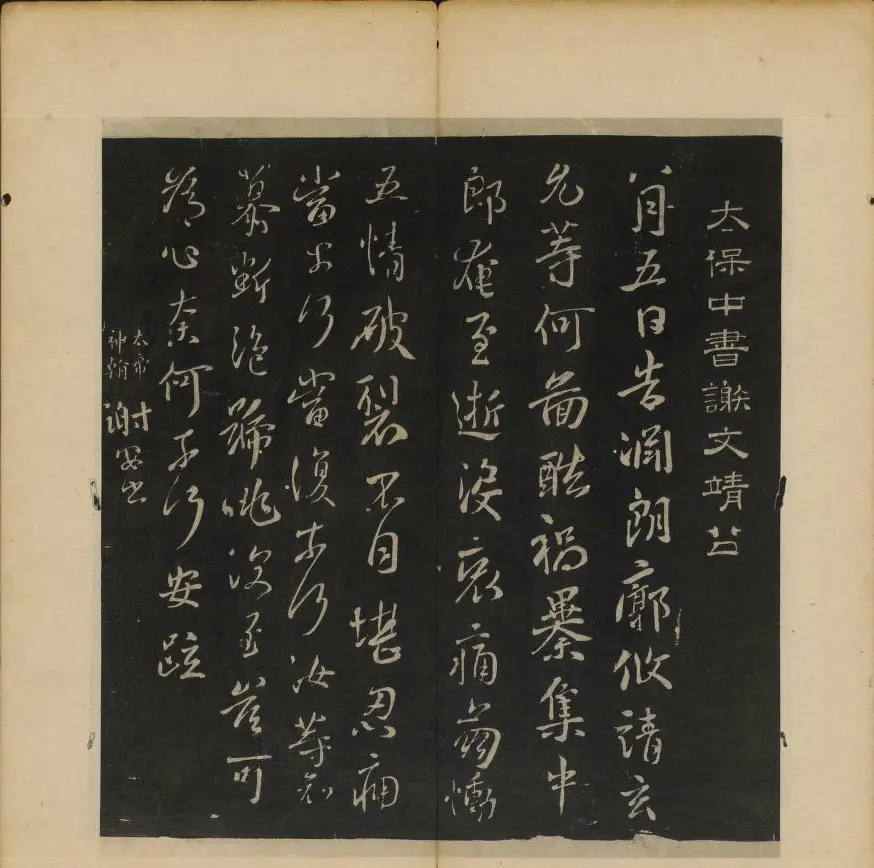 太保中書謝文靖公
八月五日告淵朗廓攸靖玄
允等何圖酷禍暴集中
郎奄至逝没哀痛崩慟
五情破裂不自堪忍痛
當奈何當復奈何汝等哀
慕斷絶號咷深至豈可
爲心奈何奈何安疏
太帝
神翰
謝安書